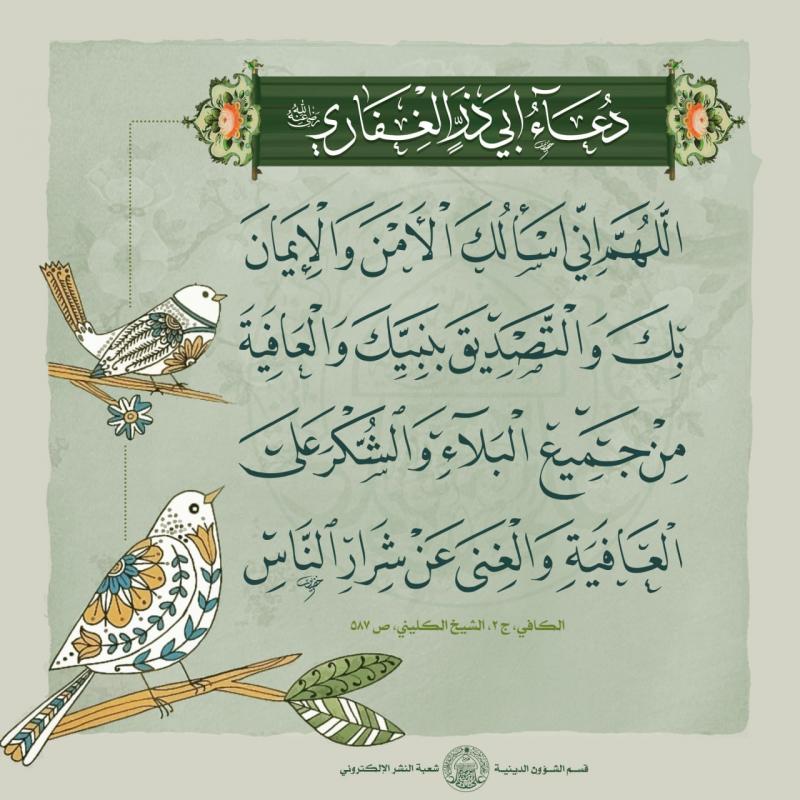 دُعَاءُ ابي ذَرٍّ الغِفَاري رضي الله عنه
اللّهُمَّ اِنّي اَسْأَلُكَ الْأَمْنَ وَالْإِيمَانَ
بِكَ وَالتَّصْدِيقَ بِنَبِيِّكَ وَالْعَافِيَةَ
مِنْ جَمِيعِ الْبَلَاءِ وَالشُّكْرَ عَلَى
الْعَافِيَةِ وَالْغِنَى عَنْ شِرَارِ النَّاسِ
الكافي، ج ٢، الشيخ الكليني، ص ٥٨٧
قسم الشؤون الدينية شعبة النشر الإلكتروني